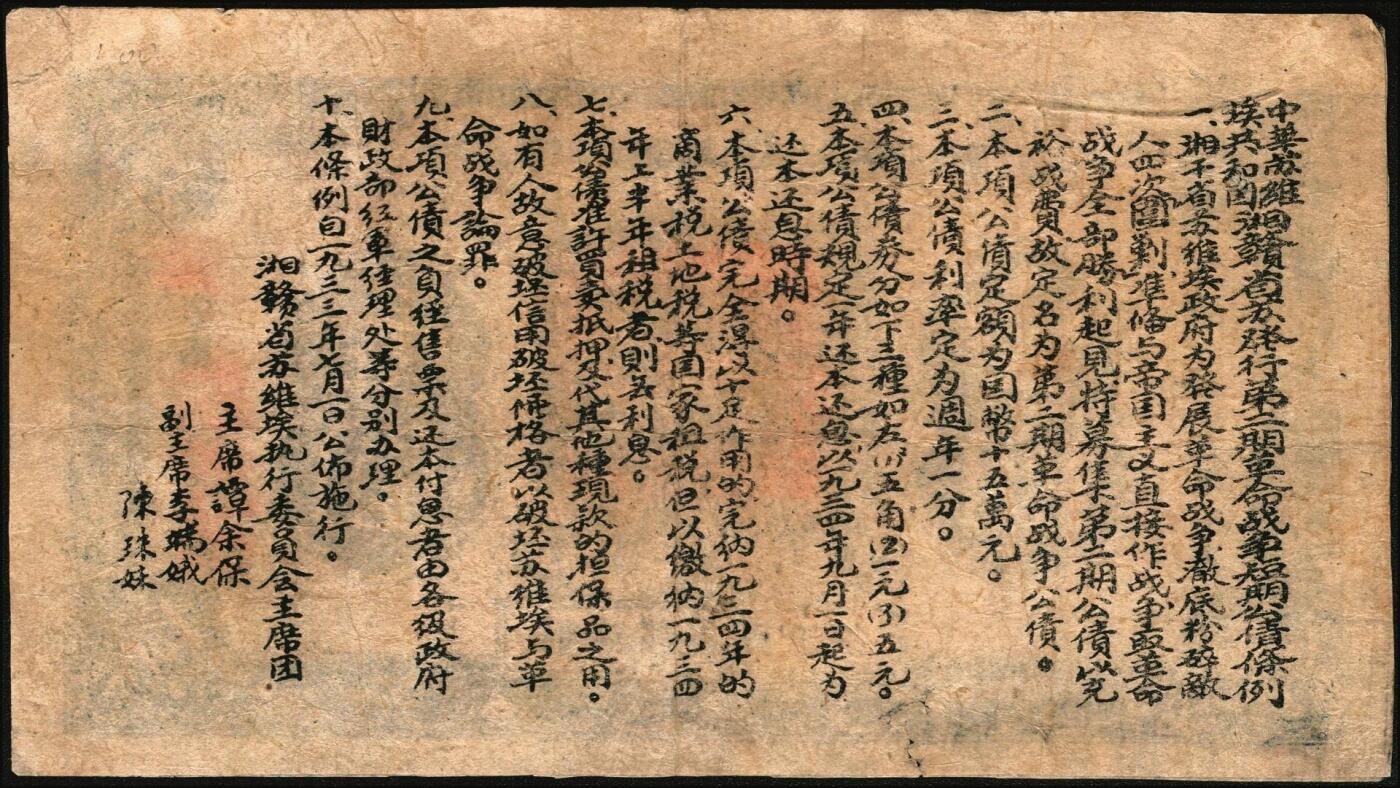 中華苏維
埃共和囯湘贛省苏發行第二期革命战争短期公債條例
一、湘干省苏维埃政府为發展革命战争澈底粉碎敌
人四次囲剿准俻与帝囯主义直接作战争取革命
战争全部勝利起見特募集第二期公債以充
裕战費故定名为第二期革命战争公債。
二、本項公債定額为囯幣十五萬元。
三、本項公債利率定为週年一分。
四、本項公債券分如下三種如左(1)五角(2)一元(3)五元。
五、本項公債規定一年还本还息以一九三四年九月一日起为
还本还息時期。
六、本項公債完全得以十足作用的完纳一九三四年的
商業税土地税等囯家租税但以繳纳一九三四
年上半年租税者則丟利息。
七、本項公債准許買卖抵押及代其他種現款的担保品之用。
八、如有人故意破坯信用破坯價格者以破坯苏维埃与革
命战争論罪。
九、本項公債之負任售票及还本付息者由各级政府
財政部红軍经理处等分别办理。
十、本條例自一九三三年七月一日公佈施行。
湘贛省苏维埃执行委員会主席团
主席譚余保
副主席李端娥
陳珠妹